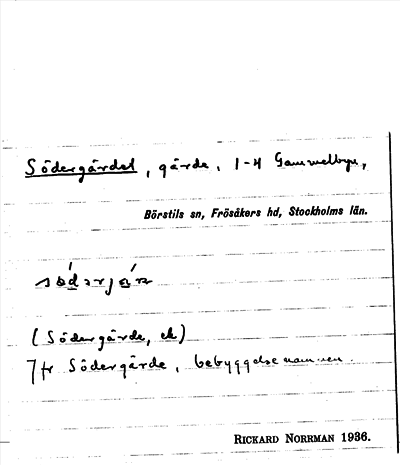 Södergärdet, gärde, 1-4 Gammelbyn,
Börstils sn, Frösåkers hd, Stockholms län.
(Södergärde, ek)
fr Södergärde, bebyggelsenamnen.
RICKARD NORRMAN 1936.